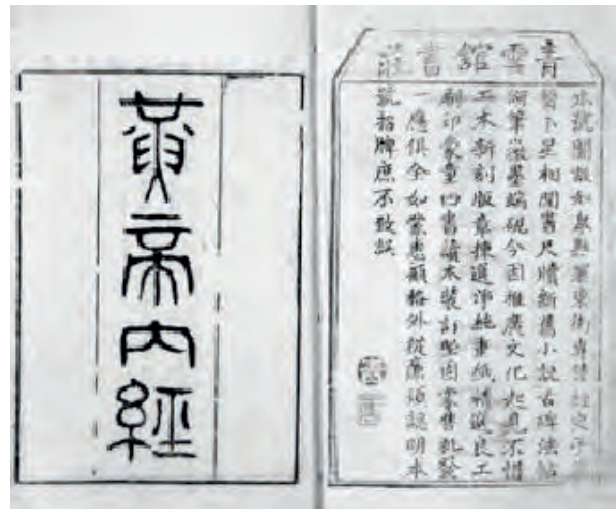 青雲館書莊
本號開設如皋縣東街專售經史子
醫卜星相閒書尺牘新舊小說古碑法帖
湖筆徽墨端硯今因推廣文化起見不惜
工本新刻版章揀選淨純重紙精良工
刷印童四書讀本裝訂堅固
一應俱全如蒙惠顧格外從廉須認明本
號招牌庶不致誤
黃帝內經